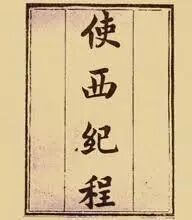 使西紀程